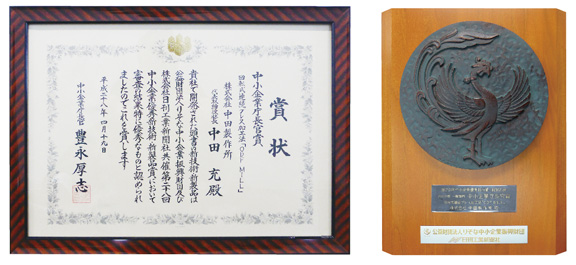 賞状
中小企業庁長官賞
回転式連続プレス加工法「ORF MILL」
株式会社 中田製作所
代表取締役社長 中田 充 殿
貴社で開発された頭書の新技術新製品は
公益財団法人りそな中小企業振興財団及び
株式会社日刊工業新聞社共催第二十八回
中小企業優秀新技術・新製品賞において
審査の結果特に優秀なものと認められ
ましたのでこれを賞します
平成二十八年四月十九日
中小企業庁長官 豊永厚志
公益財団法人りそな中小企業振興財団